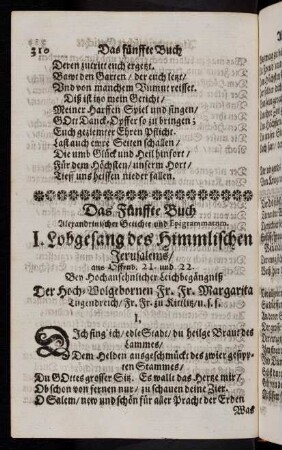 310 Das fünffte Buch
Deren zutritt euch ergetzt.
Bawt den Garten / der euch letzt /
Vnd von manchem Vnmut reisset.
Diß ist itzo mein Geticht /
Meiner Harffen Spiel und singen /
GOtt Danck-Opffer so zu bringen;
Euch geziemter Ehren Pflicht.
Last auch ewre Seiten schallen /
Die umb Glück und Heil hinfort /
Für dem Höchsten / unserm Hort /
Tieff uns heissen nieder fallen.
Das Fünffte Buch
Alexandrinischer Getichte und Epigrammatum.
I. Lobgesang des Himmlischen
Jerusalems /
aus Offenb. 21. und 22.
Bey Hochansehnlicher Leichbegängniß
Der Hoch-Wolgebornen Fr. Fr. Margarita
Tugendreich / Fr. Fr. zu Kittlitz / u. s. f.
1.
DJch sing' ich / edle Stadt / du heilge Braut des
Lammes /
Dem Helden ausgeschmückt des zwier gesipp-
ten Stammes /
Du GOttes grosser Sitz. Es walle das Hertze mir /
Ob schon von fernen nur / zu schauen deine Zier.
O Salem / new und schön für aller Pracht der Erden
Was